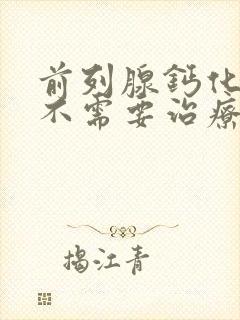 前列腺鈣化
不需要治療
揭江青